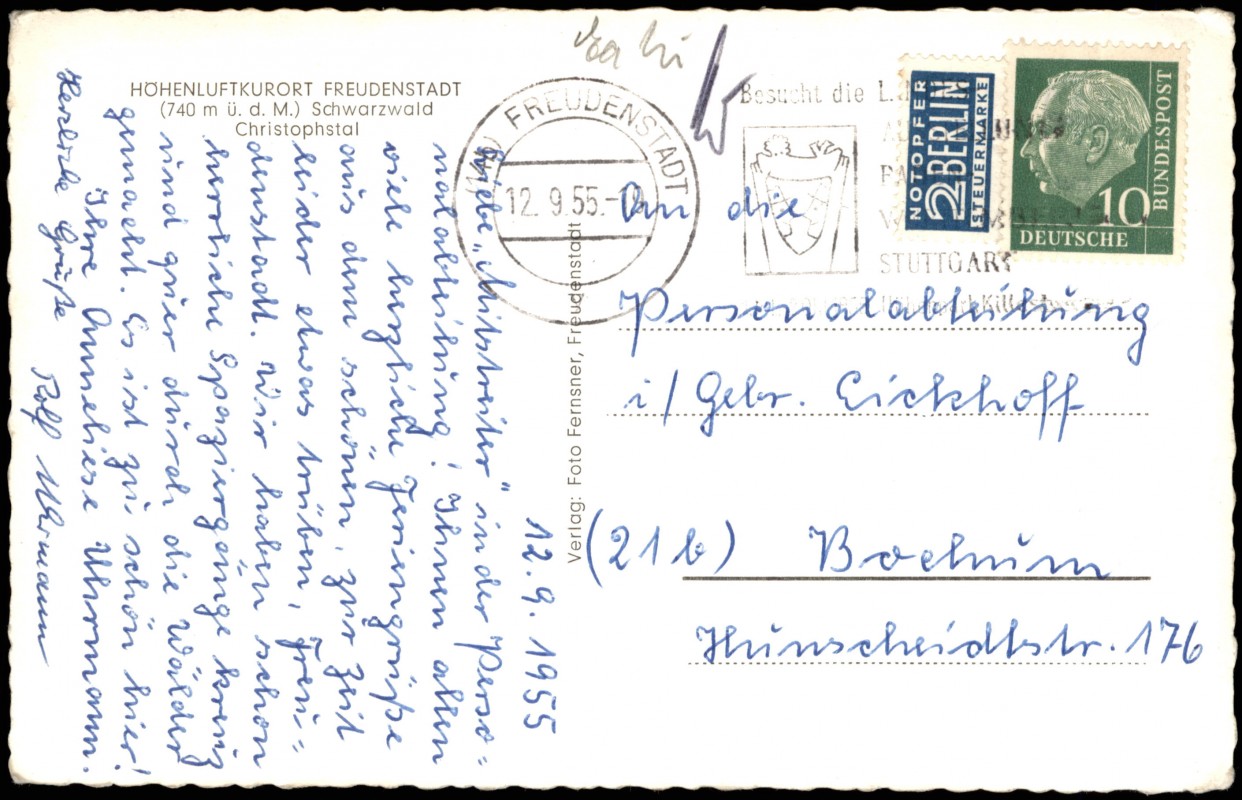 HÖHENLUFTKURORT FREUDENSTADT
(740 m ü. d. M.) Schwarzwald
Christophstal
12. 9. 1955
Liebe „Mitstreiter“ in der Perso-
nalabteilung! Ihnen allen
viele herzliche Feriengrüße
aus dem schönen, zur Zeit
leider etwas trüben, Freu-
denstadt. Wir haben schon
herrliche Spaziergänge kreuz
und quer durch die Wälder
gemacht. Es ist zu schön hier!
Ihre Anneliese Uhrmann.
Herzliche Grüße
Rolf Uhrmann
Verlag: Foto Fernsner, Freudenstadt
FREUDENSTADT
12. 9. 55.
Besucht die
STUTTGART
NOTOPFER
2 BERLIN
STEUERMARKE
10
DEUTSCHE
BUNDESPOST
An die
Personalabteilung
i/ Gebr. Eickhoff
(21b) Bochum
Hunscheidtstr. 176